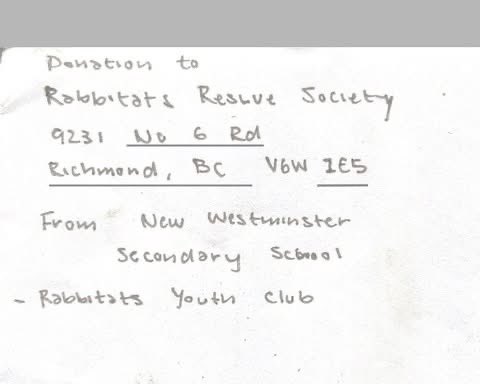 Donation to
Rabbitats Resuve Society
9231 No 6 Rd
Richmond, BC V6W 1E5
From New Westminster
Secondary School
- Rabbitats Youth Club